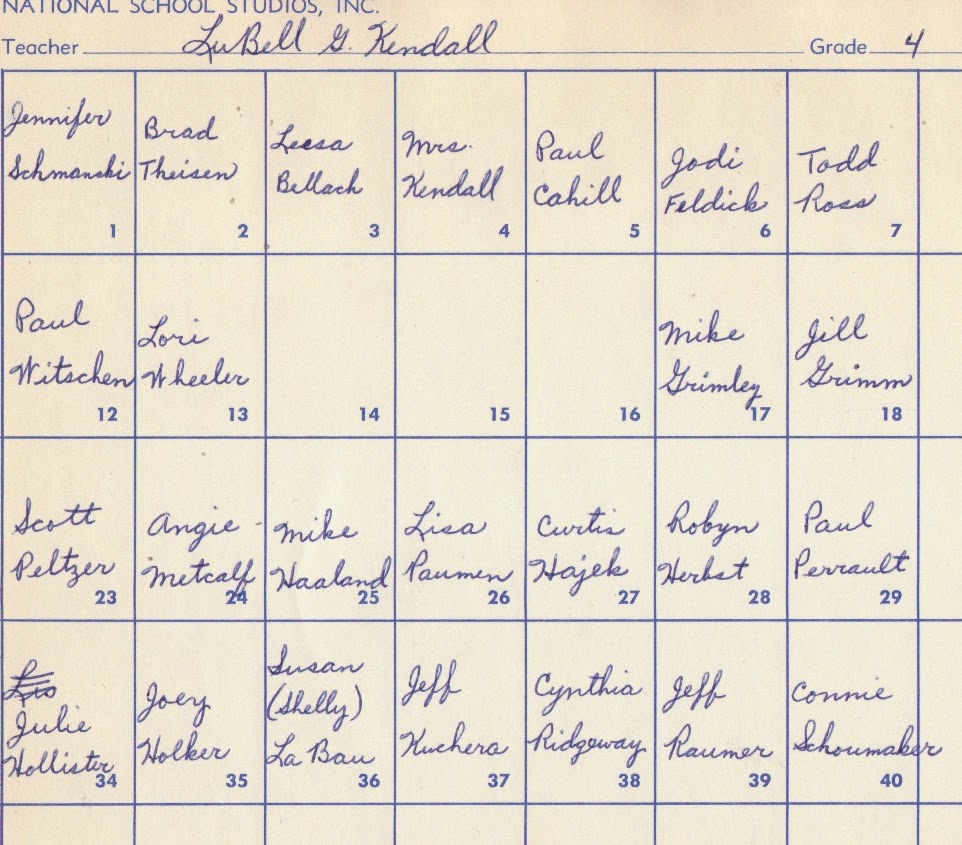 NATIONAL SCHOOL STUDIOS, INC.
Teacher LuBell G. Kendall Grade 4
Jennifer Schmanski 1
Brad Theisen 2
Leesa Bellach 3
Mrs. Kendall 4
Paul Cahill 5
Jodi Feldick 6
Todd Ross 7
Paul Witschen 12
Lori Wheeler 13
14
15
16
Mike Grimley 17
Jill Grimm 18
Scott Peltzer 23
Angie Metcalf 24
Mike Haaland 25
Lisa Paumen 26
Curtis Hajek 27
Robyn Herbst 28
Paul Perrault 29
Julie Hollister 34
Joey Holker 35
Susan (Shelly) La Bau 36
Jeff Kuchera 37
Cynthia Ridgeway 38
Jeff Raumer 39
Connie Schoumaker 40